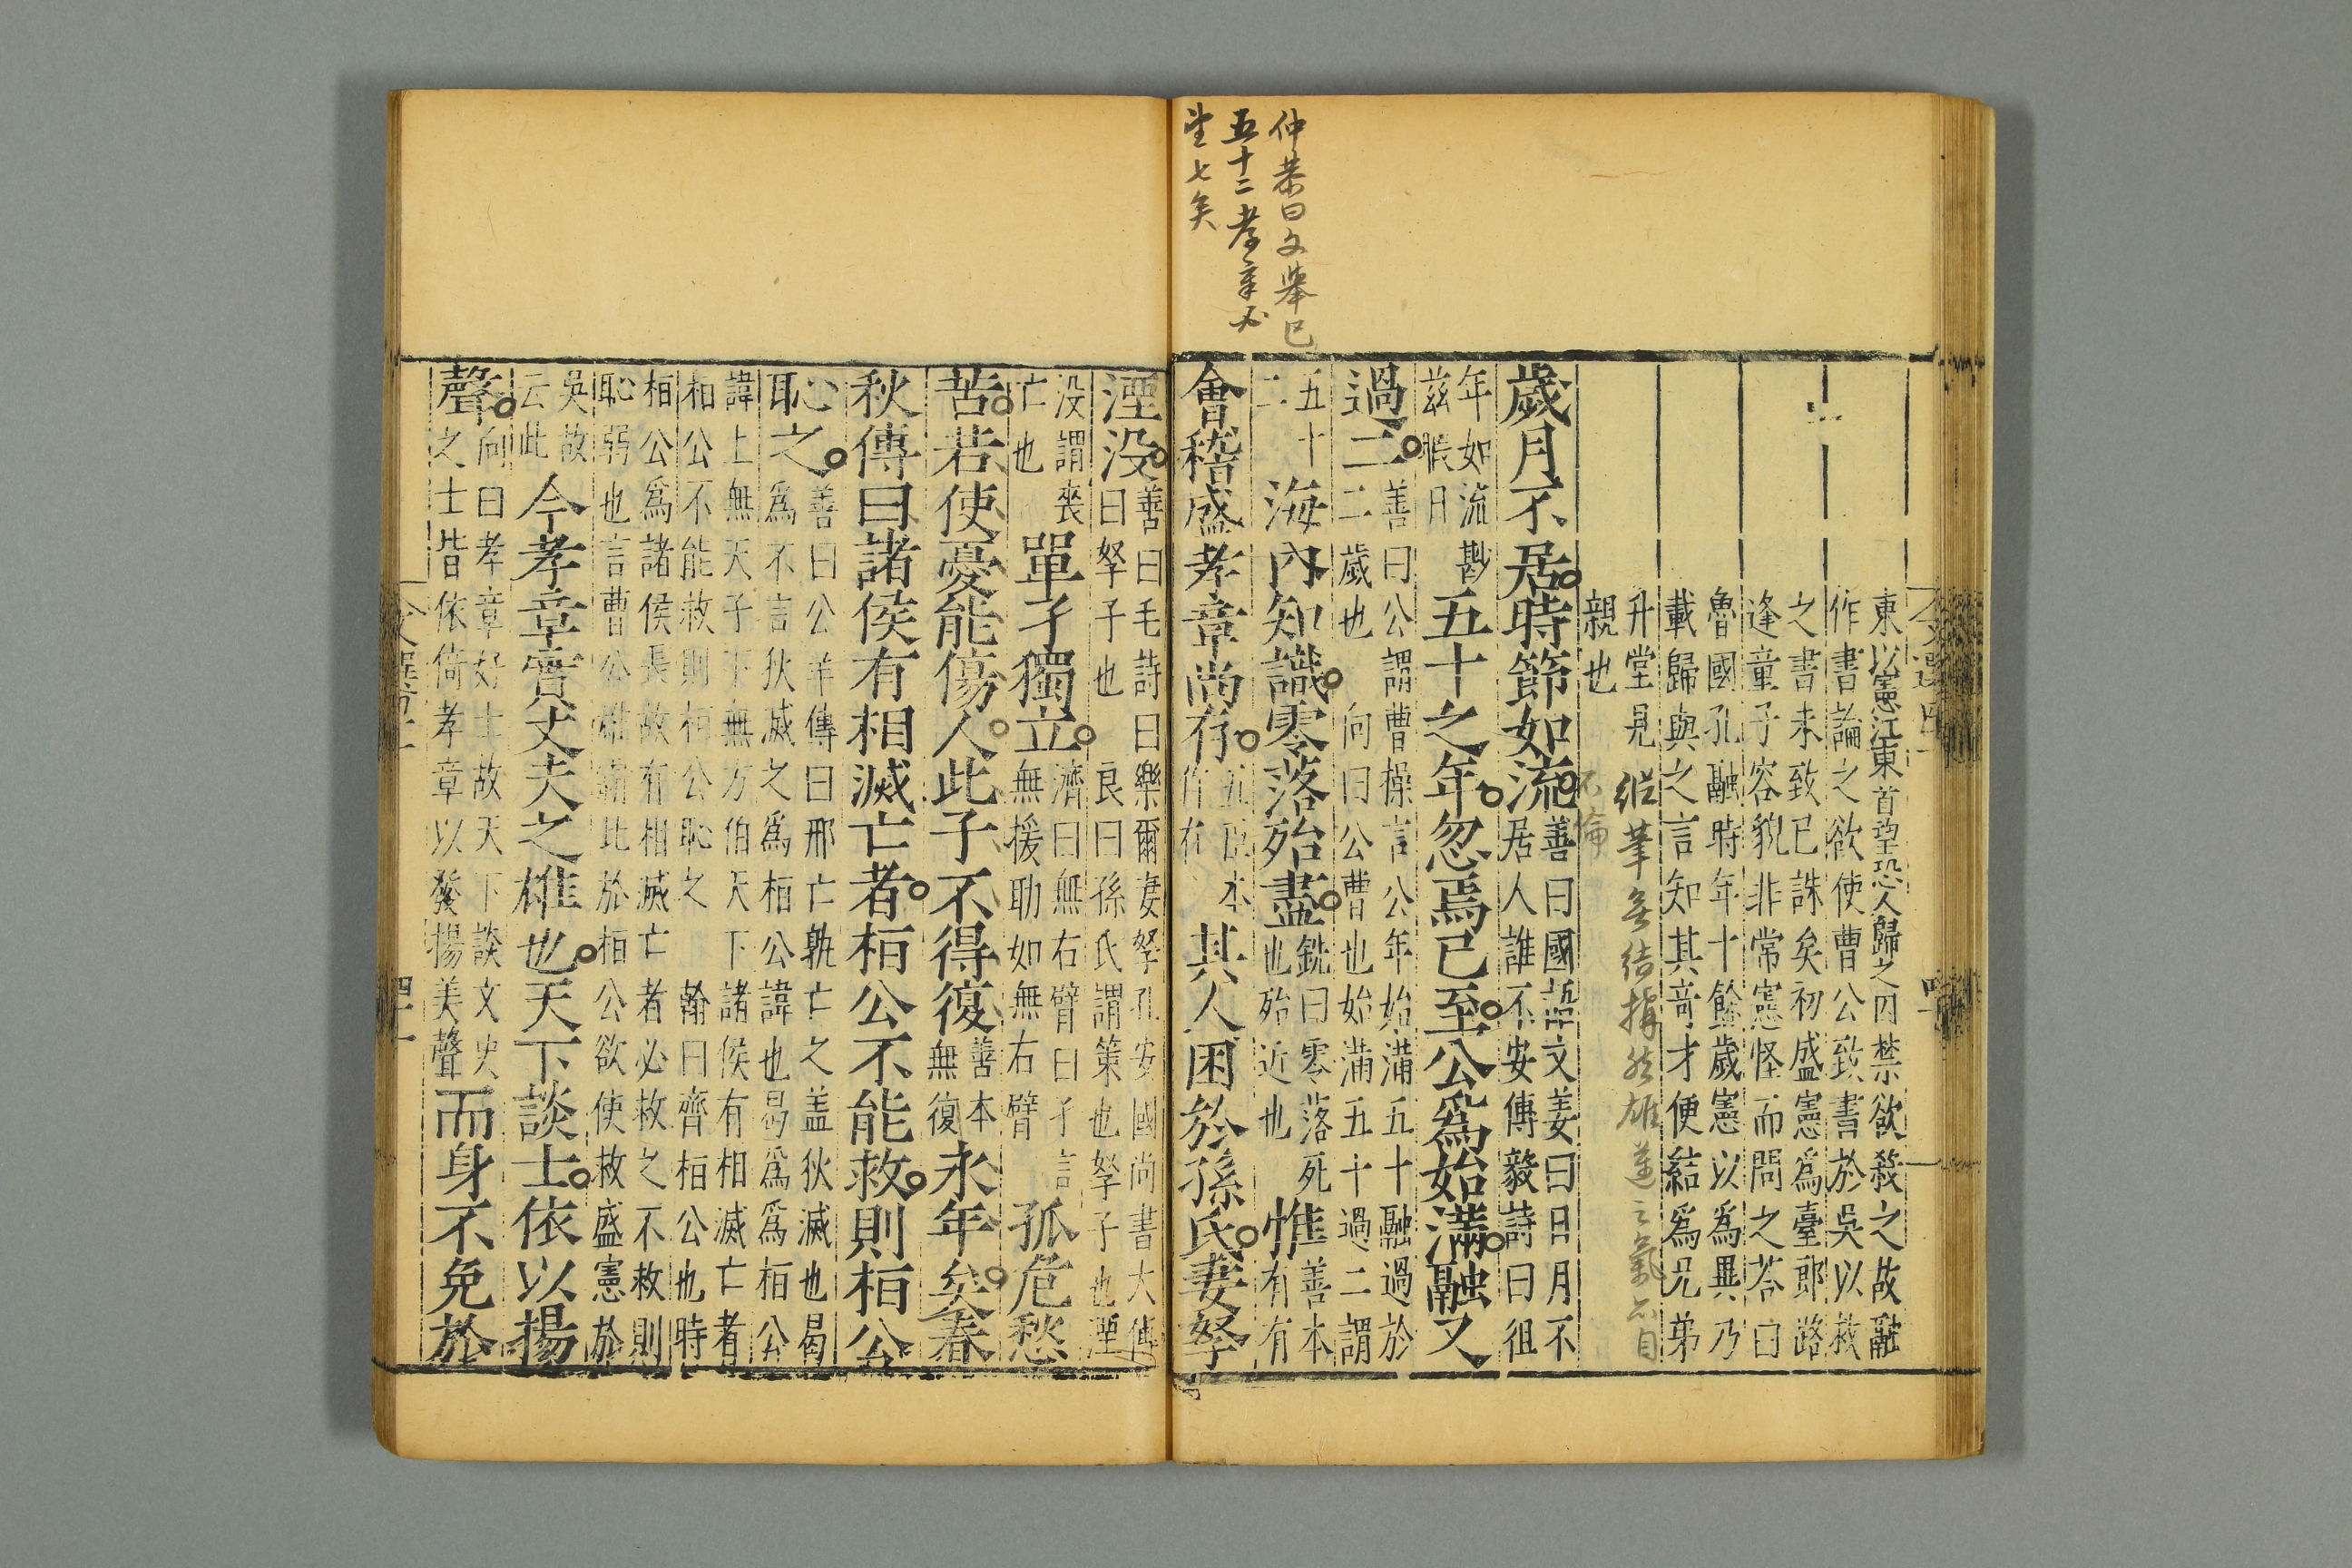 仲恭曰文舉已
五十二孝章必
望七矣
東以憲江東首望恐人歸之囚禁欲殺之故融
作書論之欲使曹公致書於吳以救
之書未致已誅矣初盛憲爲臺郎路
逢童子容貌非常憲怪而問之荅曰
魯國孔融時年十餘歲憲以爲異乃
載歸與之言知其竒才便結爲兄弟
升堂見
親也
縱筆無結構然雄邁之氣不自
不倫
歲月不居時節如流善曰國語文姜曰日月不
居人誰不安傅毅詩曰徂
年如流尠
兹暇日五十之年忽焉已至公爲始滿融又
過二善曰公謂曹操言公年始滿五十融過於
二歲也向曰公曹也始滿五十過二謂
五十
二海内知識零落殆盡銑曰零落死
也殆近也惟善本
有有
會稽盛孝章尚存五臣本
作在其人困於孫氏妻孥
湮没善曰毛詩曰樂爾妻孥孔安國尚書大傳
曰孥子也良曰孫氏謂策也孥子也湮
没謂喪
亡也單孑獨立濟曰無右臂曰孑言
無援助如無右臂孤危愁
苦若使憂能傷人此子不得復善本
無復永年矣春
秋傳曰諸侯有相滅亡者桓公不能救則桓公
恥之善曰公羊傳曰邢亡孰亡之盖狄滅也曷
爲不言狄滅之爲桓公諱也曷爲爲桓公
諱上無天子下無方伯天下諸侯有相滅亡者
桓公不能救則桓公恥之翰曰齊桓公也時
桓公爲諸侯長故有相滅亡者必救之不救則
恥弱也言曹公雄霸比於桓公欲使救盛憲於
吳故
云此今孝章實丈夫之雄也天下談士依以揚
聲向曰孝章好士故天下談文史
之士皆依倚孝章以發揚美聲而身不免於